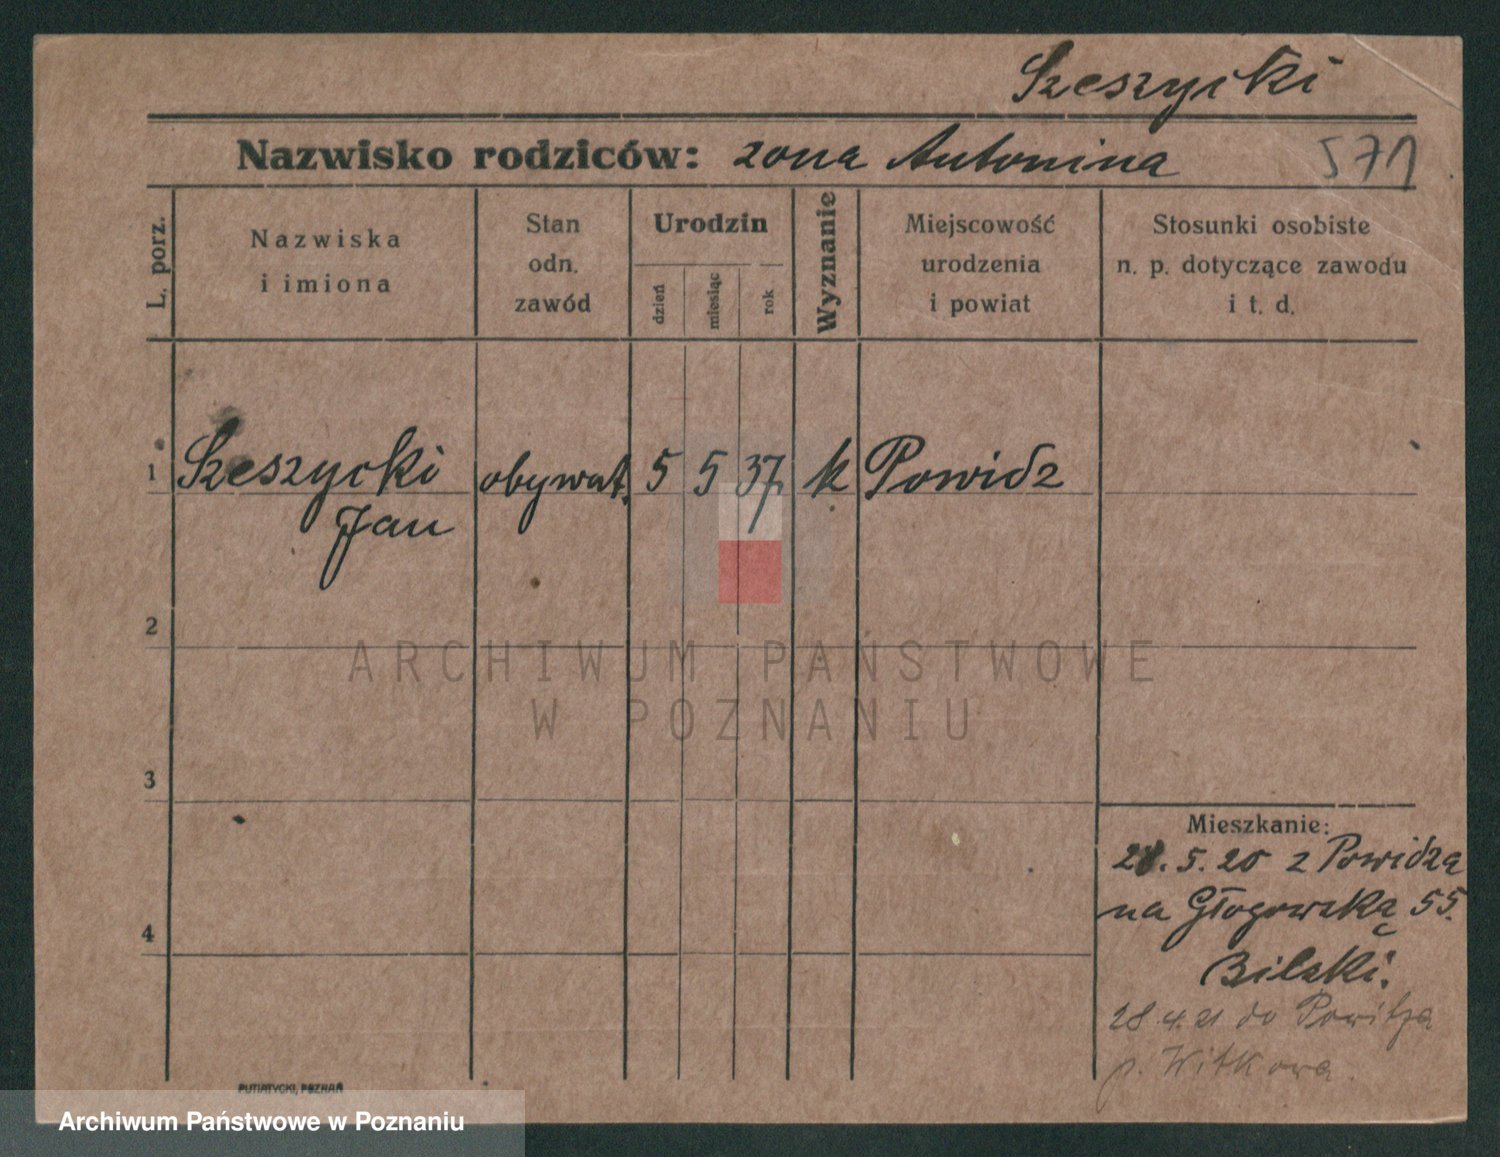 Szeszycki
Nazwisko rodziców: żona Antonina 571
L. porz.
Nazwiska
i imiona
Stan
odn.
zawód
Urodzin
dzień
miesiąc
rok
Wyznanie
Miejscowość
urodzenia
i powiat
Stosunki osobiste
n. p. dotyczące zawodu
i t. d.
1 Szeszycki obywat. 5 5 37 k Powidz
Jan
2
ARCHIWUM PAŃSTWOWE
W POZNANIU
3
Mieszkanie:
.5.20 z Powidza
na Głogowską 55.
4
Bilski.
28 4.21 do Powitza
p. Witkowa.
PUTIATYCKI, POZNAŃ
Archiwum Państwowe w Poznaniu